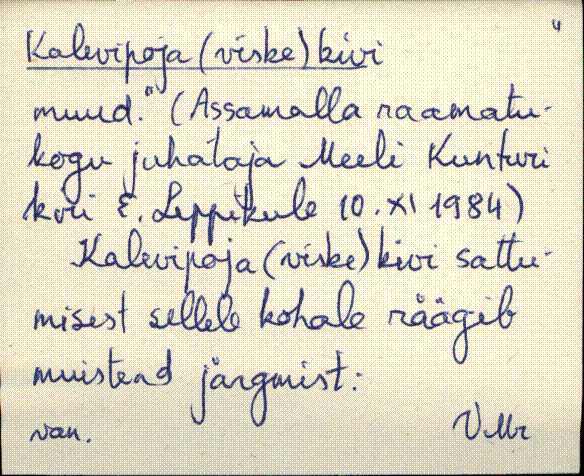 "
Kalevipoja (viske) kivi
muud." (Assamalla raamatu-
kogu juhataja Meeli Kunturi
kiri E. Leppikule 10. XI 1984)
Kalevipoja (viske) kivi sattu-
misest sellele kohale räägib
muistend järgmist:
van. V Mr